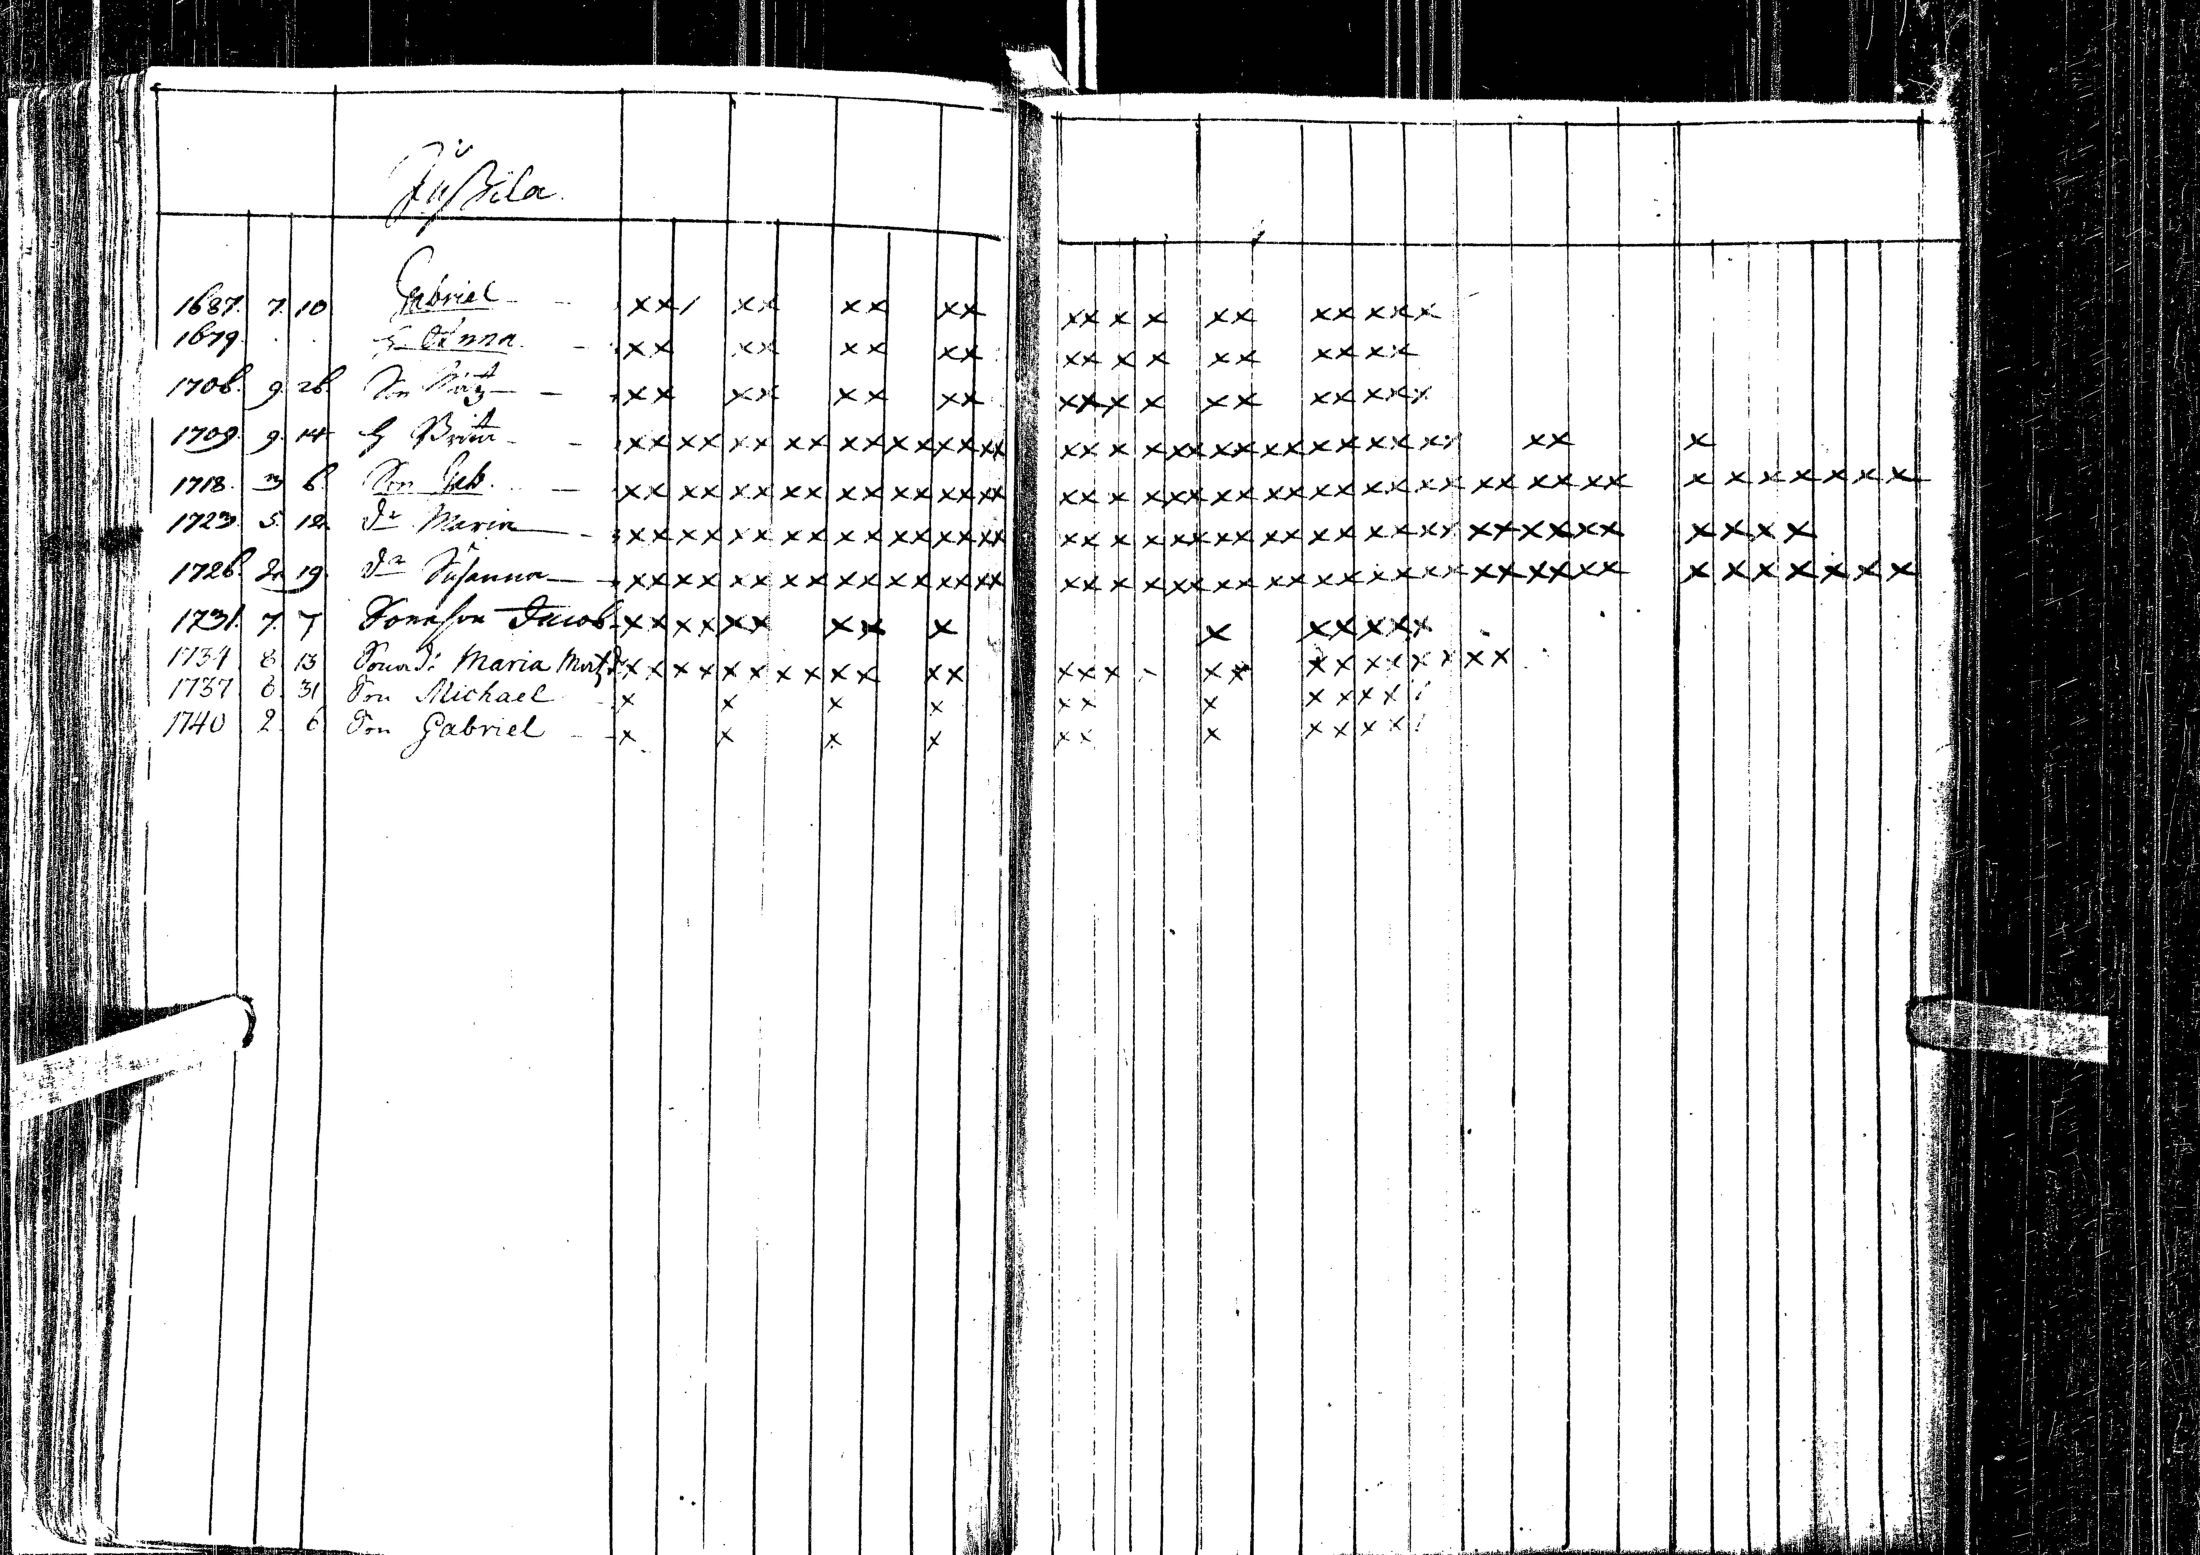 Jußila
1687. 7. 10 Gabriel xx/ xx xx xx xx x x xx xx xxx
1679. H Anna xx xx xx xx xx x x xx xxxx
1706. 9. 26. Son Matz xx xx xx xx xxx x xx xx xxx
1709. 9. 14 H Britta xx xx xx xx xx xx xx xx xx x x xx xx xx xx xx xx xx x
1718. 3 6. Son Gab. xx xx xx xx xx xx xx xx xx x x xx xx xx xx xx xx xx xx xx x x x x x x x
1723. 5. 12 dr Maria xx xx xx xx xx xx xx xx xx x x xx xx xx xx xx xx xx xx xx x x x x
1726. 2 19. dr Susanna xx xx xx xx xx xx xx xx xx x x xx xx xx xx xx xx xx xx xx x x x x x x x
1731. 7. 7 Sonason Jacob xx xx xx xx x x xx xxx
1734 8 13 Sona d: Maria Matzd: xx xx xx xx xx xx xx x - xx xx xx xx xx
1737 6. 31 Son Michael x x x x x x x x x x x
1740 2. 6 Son Gabriel x x x x x x x x x x x